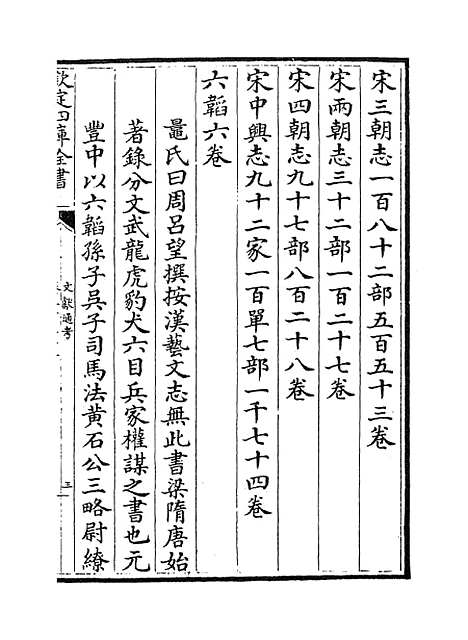 宋三朝志一百八十二部五百五十三卷
宋兩朝志三十二部一百二十七卷
宋四朝志九十七部八百二十八卷
宋中興志九十二家一百單七部一千七十四卷
六韜六卷
鼂氏曰周呂望撰按漢藝文志無此書梁隋唐始
著錄分文武龍虎豹犬六目兵家權謀之書也元
豐中以六韜孫子吳子司馬法黄石公三略尉繚
欽定四庫全書
文獻通考
三